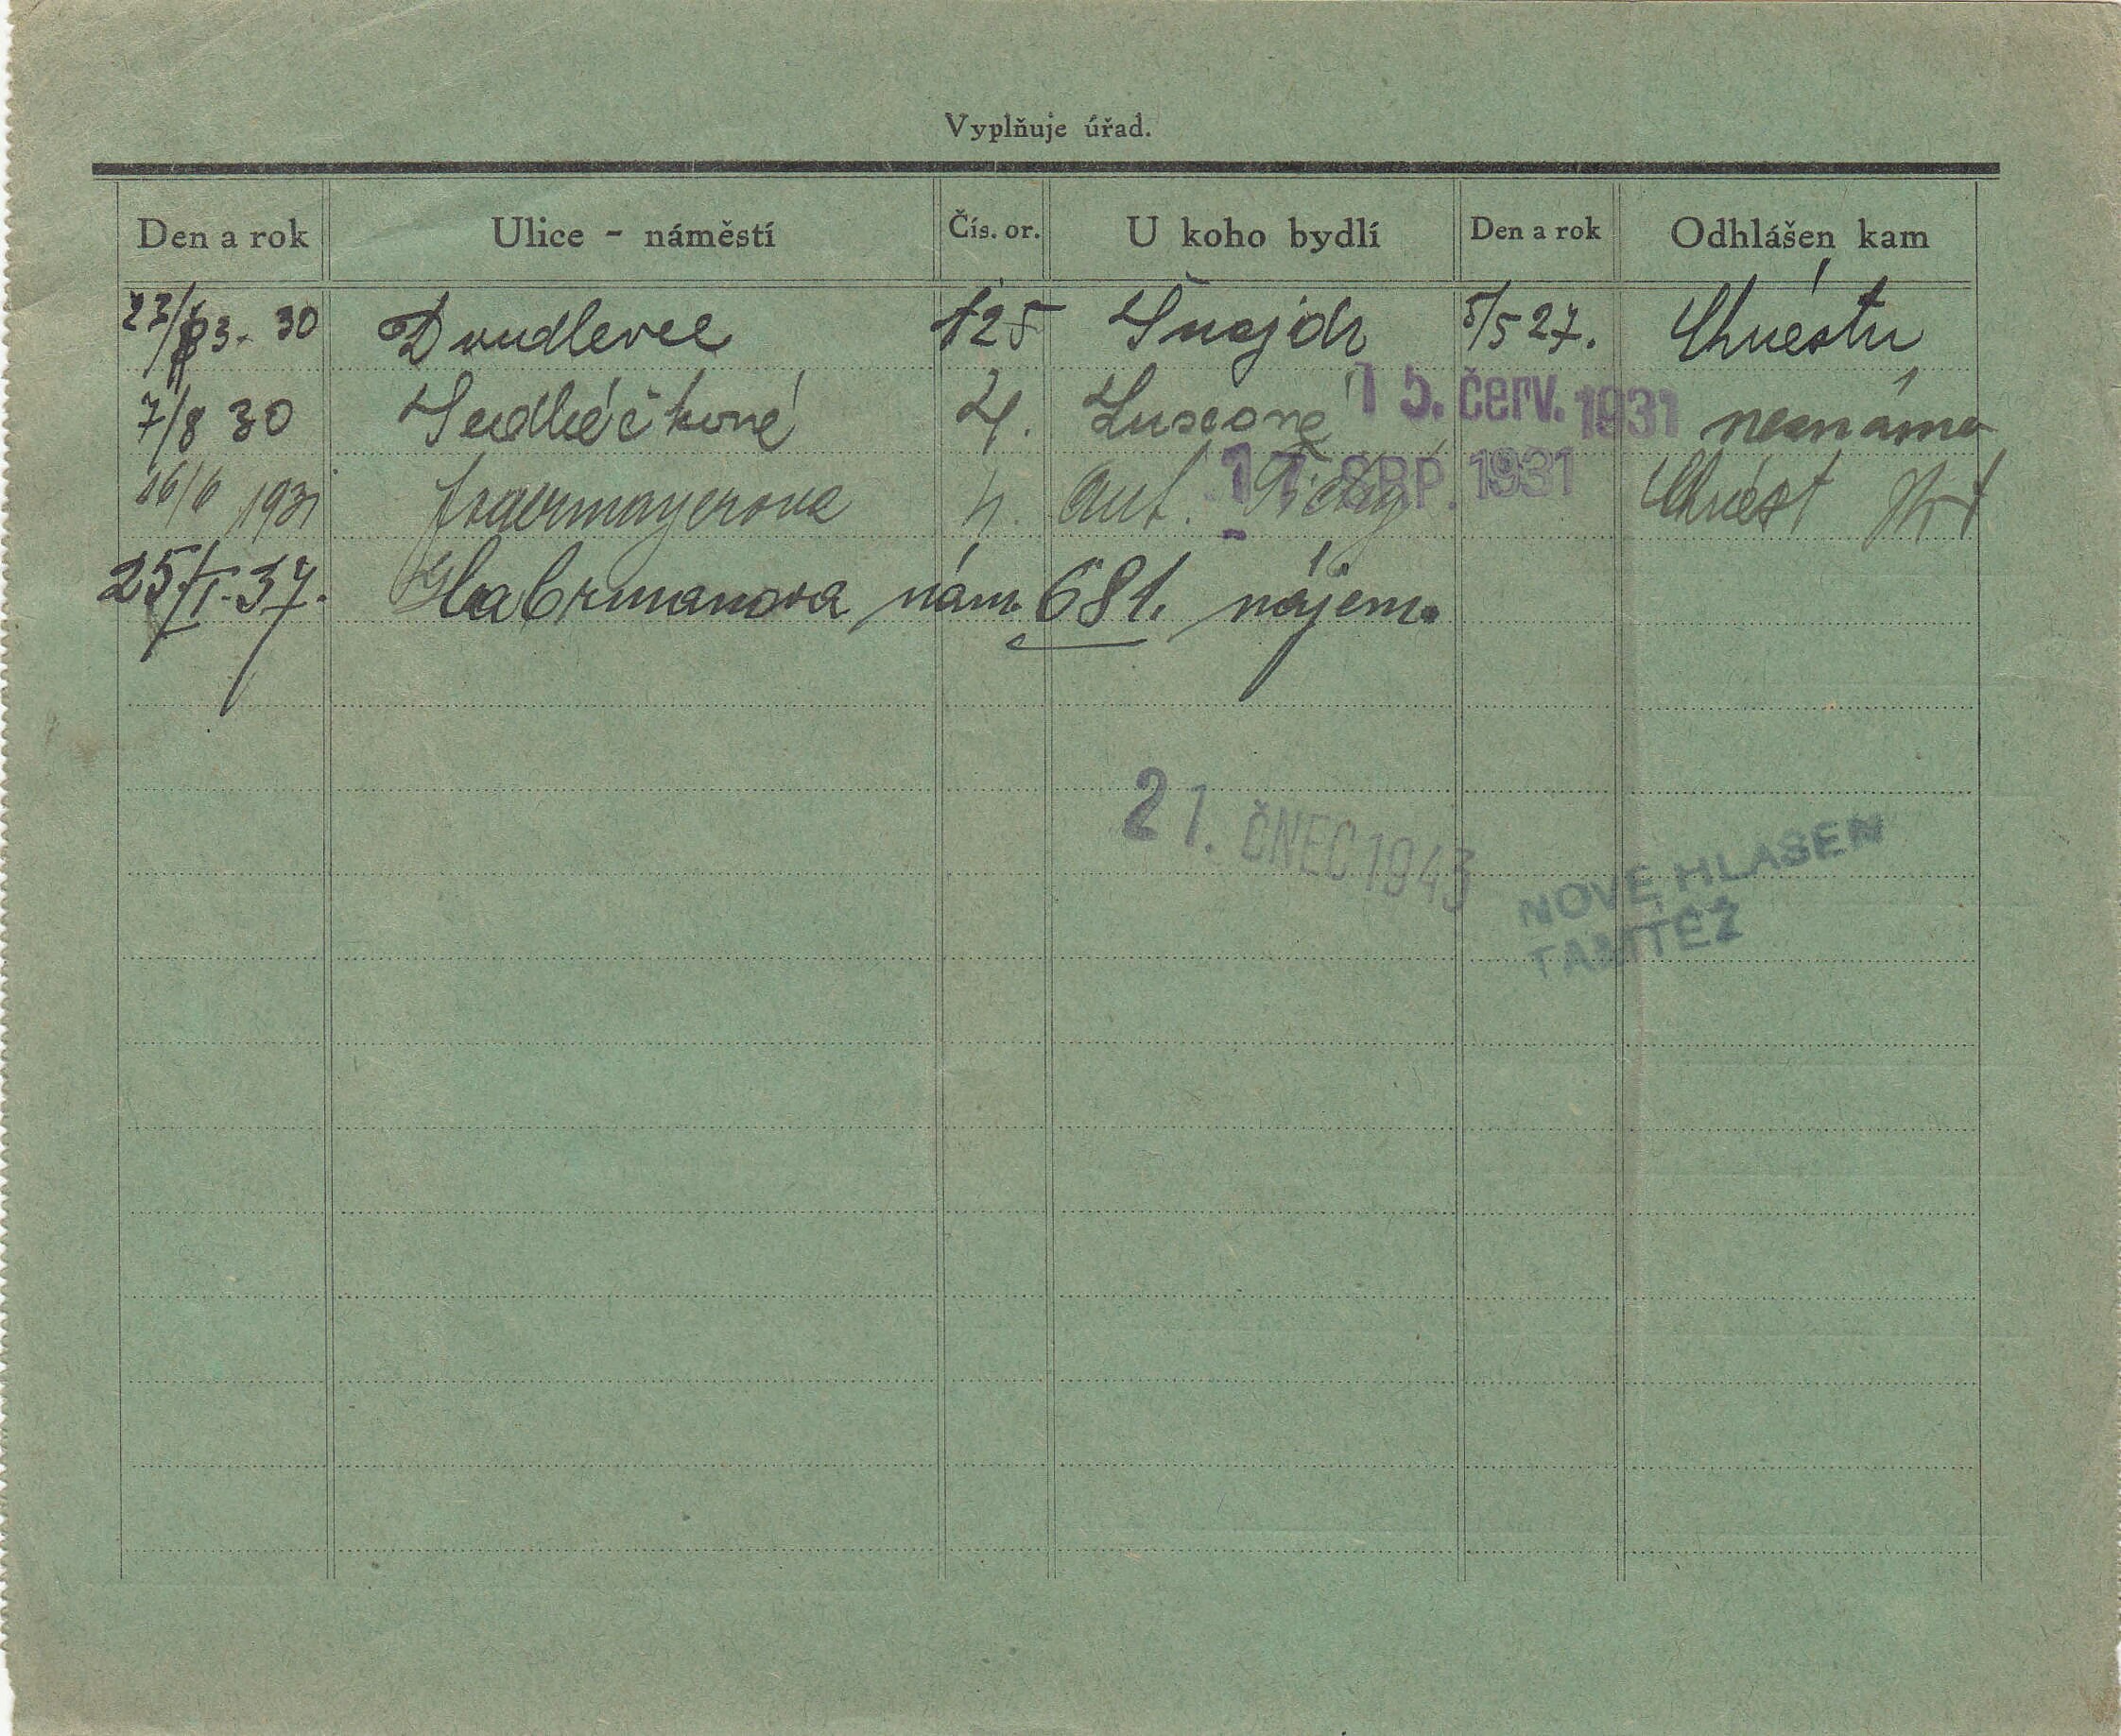 Vyplňuje úřad.
Den a rok Ulice - náměstí Čís. or. U koho bydlí Den a rok Odhlášen kam
23/3. 30 Doudlevec 125 Šnajdr 5/5 27. Chrástu
7/8 30 Sedláčkova 4. 15. červ. 1931 neznámo
16/6 1931 Jägermayerova 4. Ant. Tichý 17. SRP. 1931 Chrást
25/I. 37. Habrmanova nám. 681. nájem.
21. ČNEC 1943
NOVĚ HLÁŠEN
TAMTÉŽ